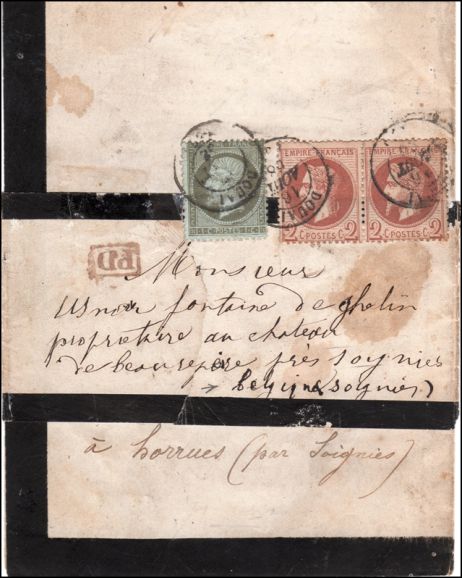 EMPIRE FRANÇAIS EMPIRE FRANÇAIS
1 C POSTES C 1 2 C POSTES C 2 2 C POSTES C 2
DOUAI DOUAI
PD
Monsieur
fontaine de ghelin
propriétaire au chateau
de beaurepaire près soignies
soignies)
à horrues (par Soignies)